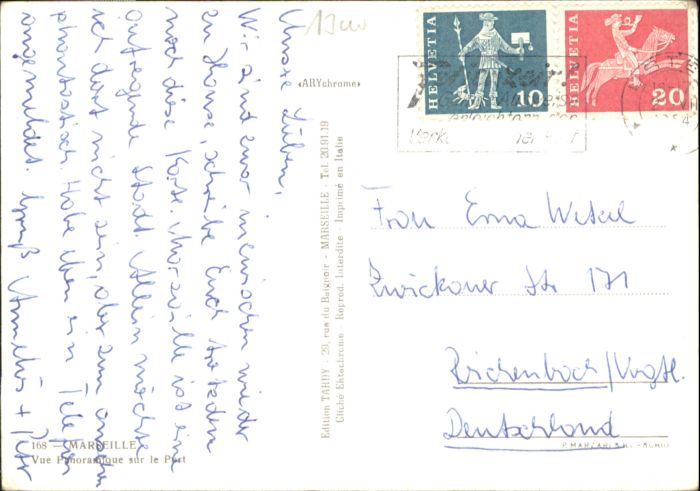 Unsere Lieben,
Wir sind zwar inzwischen wieder
zu Hause, schreibe Euch trotzdem
noch diese Karte. Marseille ist eine
aufregende Stadt. Allein möchte
ich dort nicht sein, aber zum
phantastisch. Habe eben ein Telefon
angemeldet. Gruß Annelies + Peter
168 - MARSEILLE
Vue Panoramique sur le Port
«ARYchrome»
Edition TARDY - 29, rue du Baignoir - MARSEILLE - Tel. 20.91.19
Cliché Ektachrome - Reprod. Interdite - Imprimé en Italie
HELVETIA
10
HELVETIA
20
Frau Erna Wetzel
Zwickauer Str 171
Reichenbach/Vogtl.
Deutschland